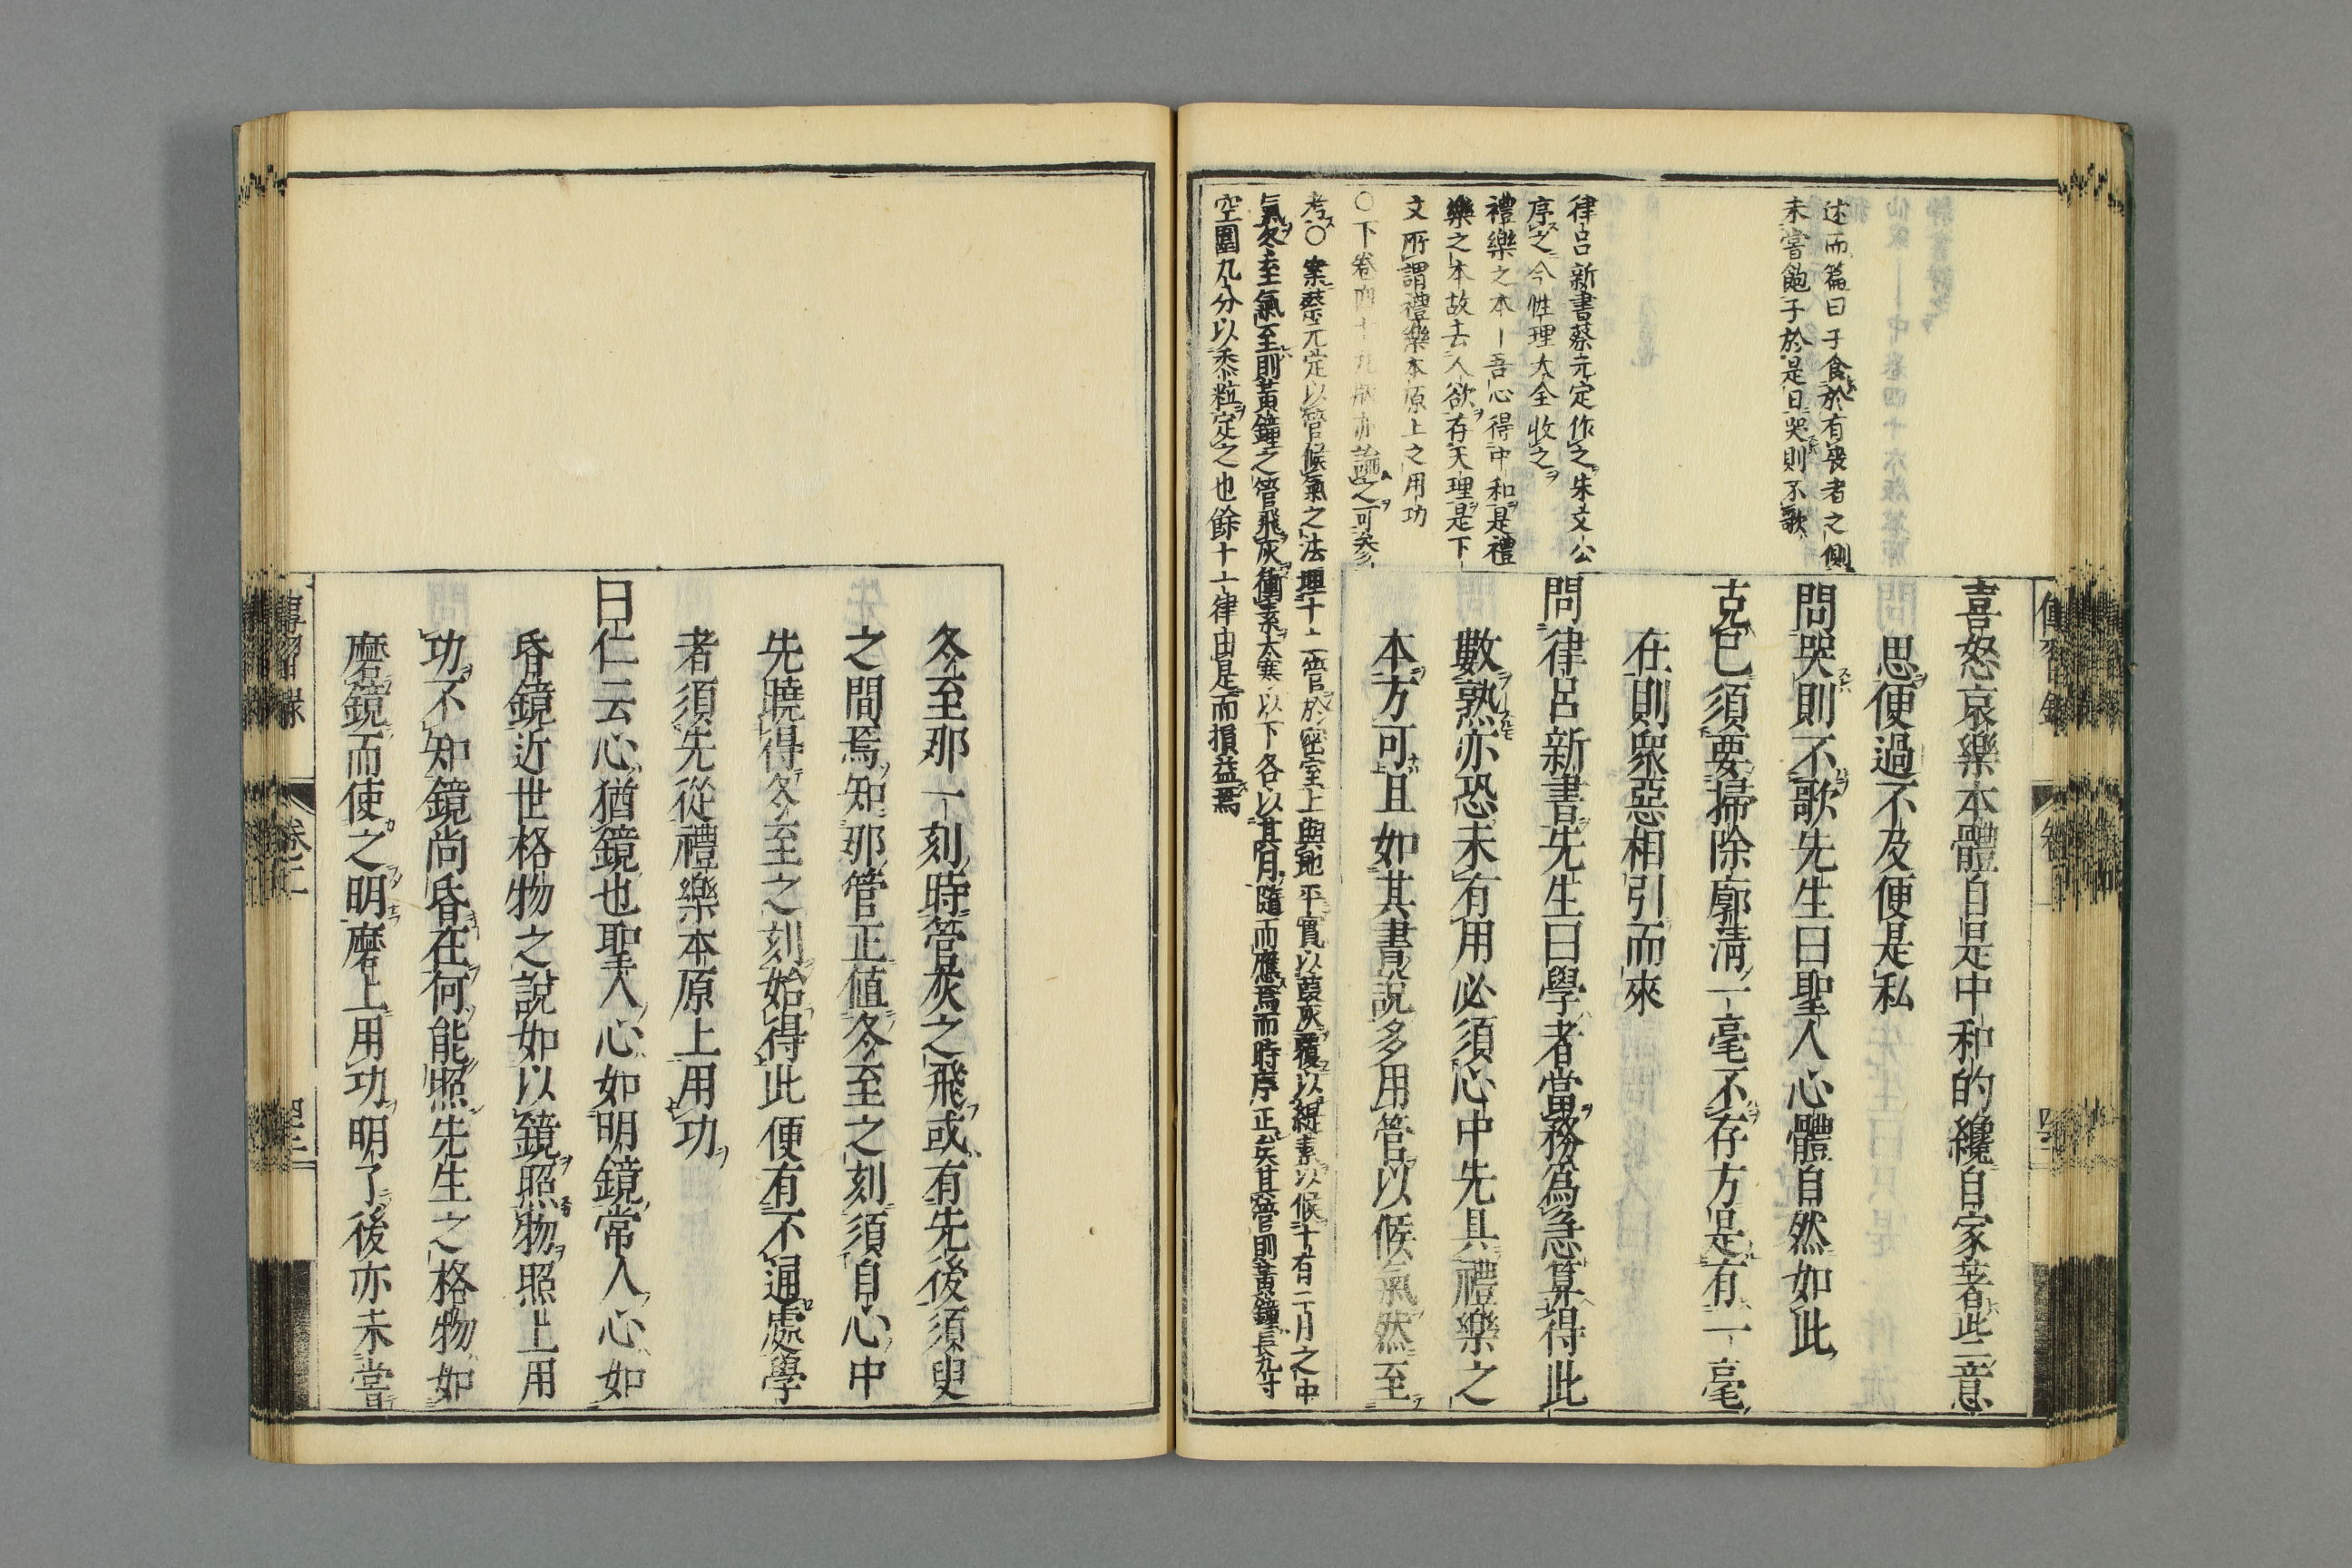 述而篇曰子食於有喪者之側
未嘗飽子於是日哭則不歌
律呂新書蔡元定作之朱文公
序之今性理大全收之
禮樂之本ー吾心得中和是禮
樂之本故去人欲存天理是下
文所謂禮樂本原上之用功
〇下卷四十九版亦論之可參
考〇案蔡元定以管候氣之法埋十二管於密室上與地平實以葭灰覆以緹素以候十有二月之中
氣冬至氣至則黃鐘之管飛灰衝素大寒以下各以其月隨而應焉而時序正矣其管則黃鐘長九寸
空圍九分以黍粒定之也餘十一律由是而損益焉
喜怒哀樂本體自是中和的纔自家著些意
思便過不及便是私
問哭則不歌先生曰聖人心體自然如此
克己須要掃除廓淸一毫不存方是有一毫
在則衆惡相引而來
問律呂新書先生曰學者當務爲急算得此
數熟亦恐未有用必須心中先具禮樂之
本方可且如其書說多用管以候氣然至
傳習錄
卷一
冬至那一刻時管灰之飛或有先後須臾
之間焉知那管正値冬至之刻須自心中
先曉得冬至之刻始得此便有不通處學
者須先從禮樂本原上用功
曰仁云心猶鏡也聖人心如明鏡常人心如
昏鏡近世格物之說如以鏡照物照上用
功不知鏡尚昏在何能照先生之格物如
磨鏡而使之明磨上用功明了後亦未嘗